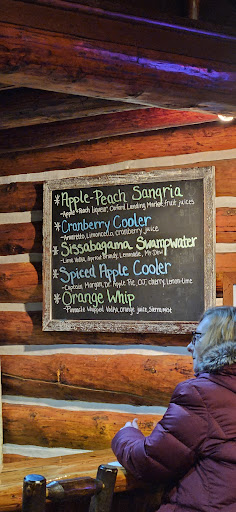 * Apple-Peach Sangria
- Apple + Peach Liqueur, Oxford Landing Merlot, fruit juices
* Cranberry Cooler
- Amaretto, Limoncello, cranberry juice
* Sissabagama Swampwater
- Lime Vodka, Apricot Brandy, Lemonade, Mtn Dew
* Spiced Apple Cooler
- Captain Morgan, Dr. Apple Pie, OJ, cherry, Lemon-Lime
* Orange Whip
- Pinnacle Whipped Vodka, orange juice, Sierra mist